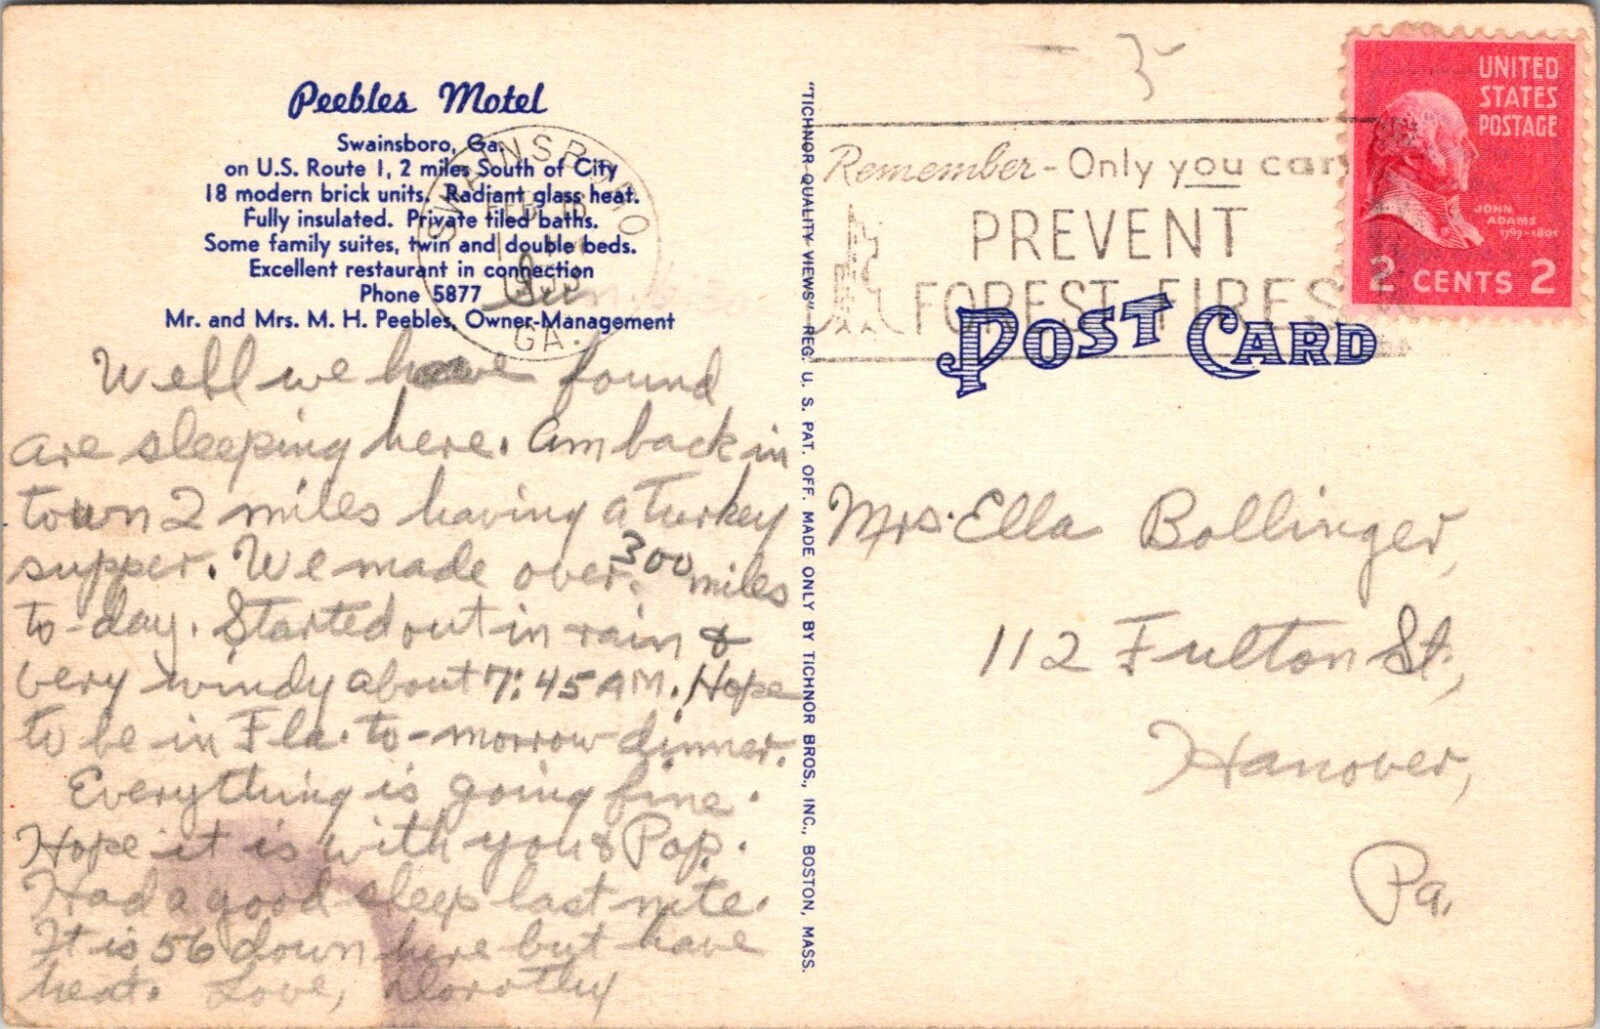 Peebles Motel
Swainsboro, Ga.
on U.S. Route 1, 2 miles South of City
18 modern brick units. Radiant glass heat.
Fully insulated. Private tiled baths.
Some family suites, twin and double beds.
Excellent restaurant in connection
Phone 5877
Mr. and Mrs. M. H. Peebles, Owner-Management
SWAINSBORO
FEB 16
GA.
Sun.
Well we have found
are sleeping here. Am back in
town 2 miles having a Turkey
supper. We made over 300 miles
to-day. Started out in rain &
very windy about 7:45 AM. Hope
to be in Fla. to-morrow dinner.
Everything is going fine.
Hope it is with you & Pop.
Had a good sleep last nite.
It is 56 down here but have
heat. Love, Dorothy
"TICHNOR QUALITY VIEWS" REG. U. S. PAT. OFF. MADE ONLY BY TICHNOR BROS., INC., BOSTON, MASS.
Remember - Only you can
PREVENT
FOREST FIRES
UNITED
STATES
POSTAGE
JOHN
ADAMS
1797-1801
2 CENTS 2
POST CARD
Mrs. Ella Bollinger,
112 Fulton St.,
Hanover,
Pa.